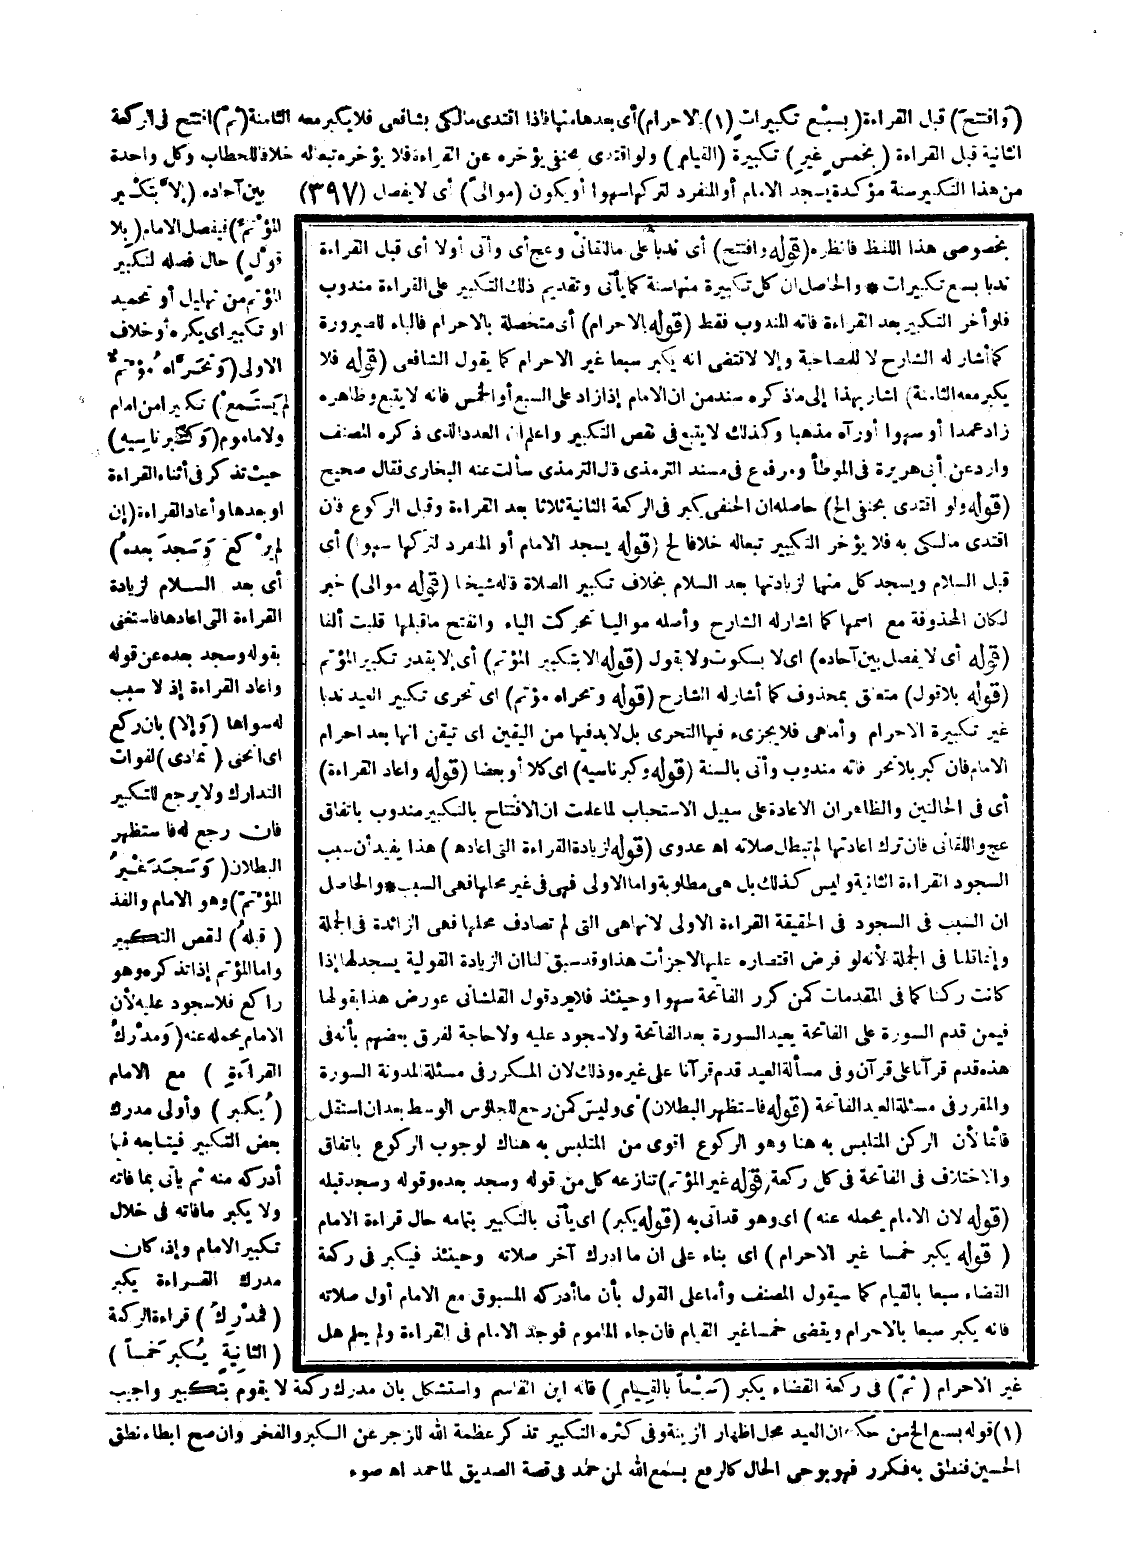 (وَافتتحَ) قبل القراءة (بسبْعِ تكبيراتٍ (١) بالاحرام) أى بعدها منها فاذا اقتدى مالكى بشافعى فلا يكبر معه الثامنة (ثمّ) افتتح فى الركعة
الثانية قبل القراءة (بِخمسٍ غيرِ) تكبيرة (القيام) ولو اقتدى بحنفى يؤخره عن القراءة فلا يؤخره تبعا له خلافا للحطاب وكل واحدة
من هذا التكبير سنة مؤكدة يسجد الامام أو المنفرد لتركها سهوا أو يكون (موالىً) أى لا يفصل (٣٩٧)
بين آحاده (إلاّ بتكْبير
المُؤتمّ) فيفصل الامام (بلا
قوْلٍ) حال فصله لتكبير
المؤتم من تهليل أو تحميد
او تكبير اى يكره أو خلاف
الاولى (وَتحَرَّاهُ مُؤتمٌّ
لم يَستَمع) تكبيرا من امام
ولا مأموم (وَكبّر ناسيه)
حيث تذكر فى أثناء القراءة
او بعدها وأعاد القراءة (إن
لم يرْكعْ وَسَجدَ بعدهُ)
أى بعد السلام لزيادة
القراءة التى اعادها فاستغنى
بقوله وسجد بعده عن قوله
واعاد القراءة إذ لا سبب
له سواها (وَإلا) بان ركع
اى انحنى (تمادى) لفوات
التدارك ولا يرجع للتكبير
فان رجع له فاستظهر
البطلان (وَسَجدَ غيْرُ
المؤتمّ) وهو الامام والفذ
(قبلهُ) لنقص التكبير
واما المؤتم إذا تذكره وهو
راكع فلا سجود عليه لأن
الامام يحمله عنه (وَمدْركُ
القراءَةِ) مع الامام
(يُكبر) وأولى مدرك
بعض التكبير فيتابعه فيما
أدركه منه ثم يأتى بما فاته
ولا يكبر ما فاته فى خلال
تكبير الامام وإذا كان
مدرك القراءة يكبر
(فمدْركُ) قراءة الركعة
(الثانِيةِ يُكبر خمساً)
بخصوصى هذا اللفظ فانظره (قوله وافتتح) أى ندبا على ما للقانى وعج أى وأتى أولا أى قبل القراءة
ندبا بسبع تكبيرات * والحاصل ان كل تكبيرة منها سنة كما يأتى وتقديم ذلك التكبير على القراءة مندوب
فلو أخر التكبير بعد القراءة فاته المندوب فقط (قوله بالاحرام) أى متحصلة بالاحرام فالباء للصيرورة
كما أشار له الشارح لا للمصاحبة وإلا لاقتضى انه يكبر سبعا غير الاحرام كما يقول الشافعى (قوله فلا
يكبر معه الثامنة) اشار بهذا إلى ما ذكره سند من ان الامام إذا زاد على السبع أو الخمس فانه لا يتبع وظاهره
زاد عمدا أو سهوا أو رآه مذهبا وكذلك لا يتبع فى نقص التكبير واعلم ان العدد الذى ذكره المصنف
وارد عن أبى هريرة فى الموطأ ومرفوع فى مسند الترمذى قال الترمذى سألت عنه البخارى فقال صحيح
(قوله ولو اقتدى بحنفى الخ) حاصله ان الحنفى يكبر فى الركعة الثانية ثلاثا بعد القراءة وقبل الركوع فان
اقتدى مالكى به فلا يؤخر التكبير تبعا له خلافا لح (قوله يسجد الامام أو المنفرد لتركها سهوا) أى
قبل السلام ويسجد كل منهما لزيادتها بعد السلام بخلاف تكبير الصلاة قاله شيخنا (قوله موالى) خبر
لكان المحذوفة مع اسمها كما اشار له الشارح وأصله مواليا تحركت الياء وانفتح ما قبلها قلبت ألفا
(قوله أى لا يفصل بين آحاده) اى لا بسكوت ولا بقول (قوله الا بتكبير المؤتم) أى إلا بقدر تكبير المؤتم
(قوله بلا قول) متعلق بمحذوف كما أشار له الشارح (قوله وتحراه مؤتم) اى تحرى تكبير العيد ندبا
غير تكبيرة الاحرام وأما هى فلا يجزىء فيها التحرى بل لابد فيها من اليقين اى تيقن انها بعد احرام
الامام فان كبر بلا تحر فاته مندوب وأتى بالسنة (قوله وكبر ناسيه) اى كلا أو بعضا (قوله واعاد القراءة)
أى فى الحالتين والظاهر ان الاعادة على سبيل الاستحباب لما علمت ان الافتتاح بالتكبير مندوب باتفاق
عج واللقانى فان ترك اعادتها لم تبطل صلاته اه عدوى (قوله لزيادة القراءة التى اعادها) هذا يفيد أن سبب
السجود القراءة الثانية وليس كذلك بل هى مطلوبة واما الاولى فهى فى غير محلها فهى السبب * والحاصل
ان السبب فى السجود فى الحقيقة القراءة الاولى لانها هى التى لم تصادف محلها فهى الزائدة فى الجملة
وإنما قلنا فى الجملة لأنه لو فرض اقتصاره عليها لاجزأت هذا وقد سبق لنا ان الزيادة القولية يسجد لها إذا
كانت ركنا كما فى المقدمات كمن كرر الفاتحة سهوا وحينئذ فلا يرد قول القلشانى عورض هذا بقولها
فيمن قدم السورة على الفاتحة يعيد السورة بعد الفاتحة ولا سجود عليه ولا حاجة لفرق بعضهم بأنه فى
هذه قدم قرآنا على قرآن وفى مسألة العيد قدم قرآنا على غيره وذلك لان المكرر فى مسئلة المدونة السورة
والمقرر فى مسئلة العيد الفاتحة (قوله فاستظهر البطلان) أى وليس كمن رجع للجلوس الوسط بعد ان استقل
قائما لأن الركن المتلبس به هنا وهو الركوع اقوى من المتلبس به هناك لوجوب الركوع باتفاق
والاختلاف فى الفاتحة فى كل ركعة (قوله غير المؤتم) تنازعه كل من قوله وسجد بعده وقوله وسجد قبله
(قوله لان الامام يحمله عنه) اى وهو قد اتى به (قوله يكبر) اى يأتى بالتكبير بتمامه حال قراءة الامام
(قوله يكبر خمسا غير الاحرام) اى بناء على ان ما ادرك آخر صلاته وحينئذ فيكبر فى ركعة
القضاء سبعا بالقيام كما سيقول المصنف وأما على القول بأن ما أدركه المسبوق مع الامام أول صلاته
فانه يكبر سبعا بالاحرام ويقضى خمسا غير القيام فان جاء المأموم فوجد الامام فى القراءة ولم يعلم هل
غير الاحرام (ثمّ) فى ركعة القضاء يكبر (سَبْعاً بالقيام) قاله ابن القاسم واستشكل بان مدرك ركعة لا يقوم بتكبير واجيب
(١) قوله بسبع الخ من حكمه ان العيد محل اظهار الزينة وفى كثرة التكبير تذكر عظمة الله للزجر عن الكبر والفخر وان صح ابطاء نطق
الحسين فنطق به فكرر فهو يوحى الحال كالرفع بسمع الله لمن حمده فى قصة الصديق لما حمد اه ضوء